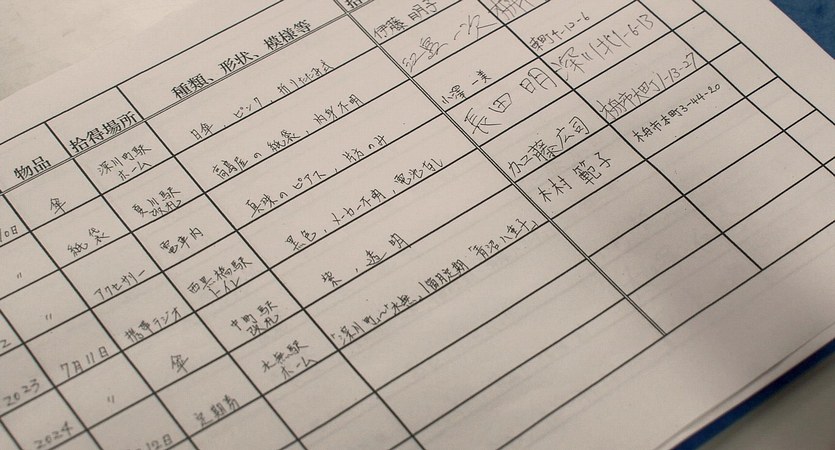 物品
拾得場所
種類、形状、模様等
傘
深川町駅
ホーム
日傘、ピンク、折りたたみ式
伊藤 明子
0日
紙袋
夏川駅
改札
高島屋の紙袋、内身不明
一次
町4-12-6
〃
アクセサリー
電車内
真珠のピアス、片方のみ
小澤 一美
深川北1-6-13
〃
携帯ラジオ
トイレ
黒色、メーカー不明、電池なし
長田 明
2023
7月11日
傘
中町駅
改札
紫、透明
加藤 広司
2024
〃
定期券
木無駅
ホーム
「深川町」〜「木無」1個月定期
木村 範子
本町3-44-20
12日